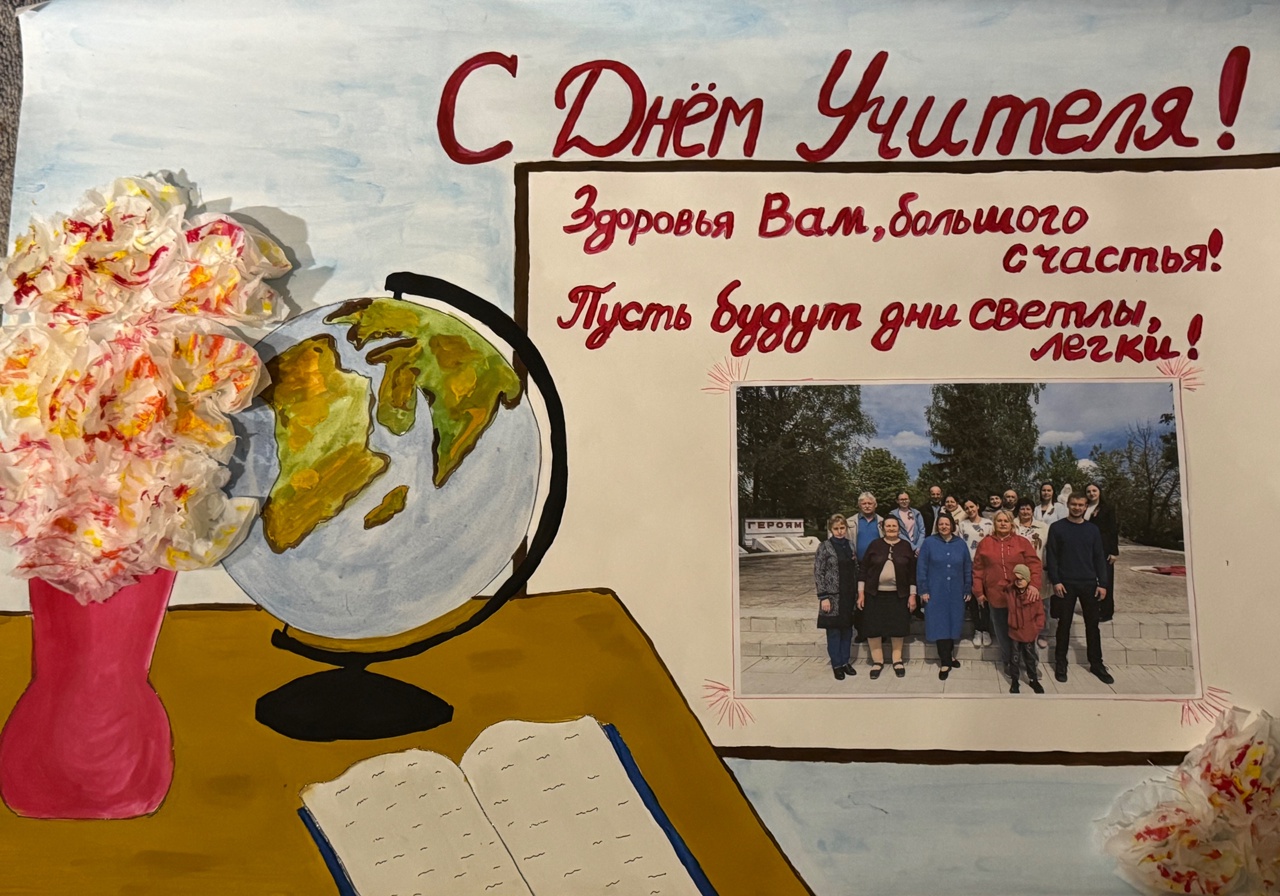 С Днём Учителя!
Здоровья Вам, большого
счастья!
Пусть будут дни светлы,
легки!
ГЕРОЯМ